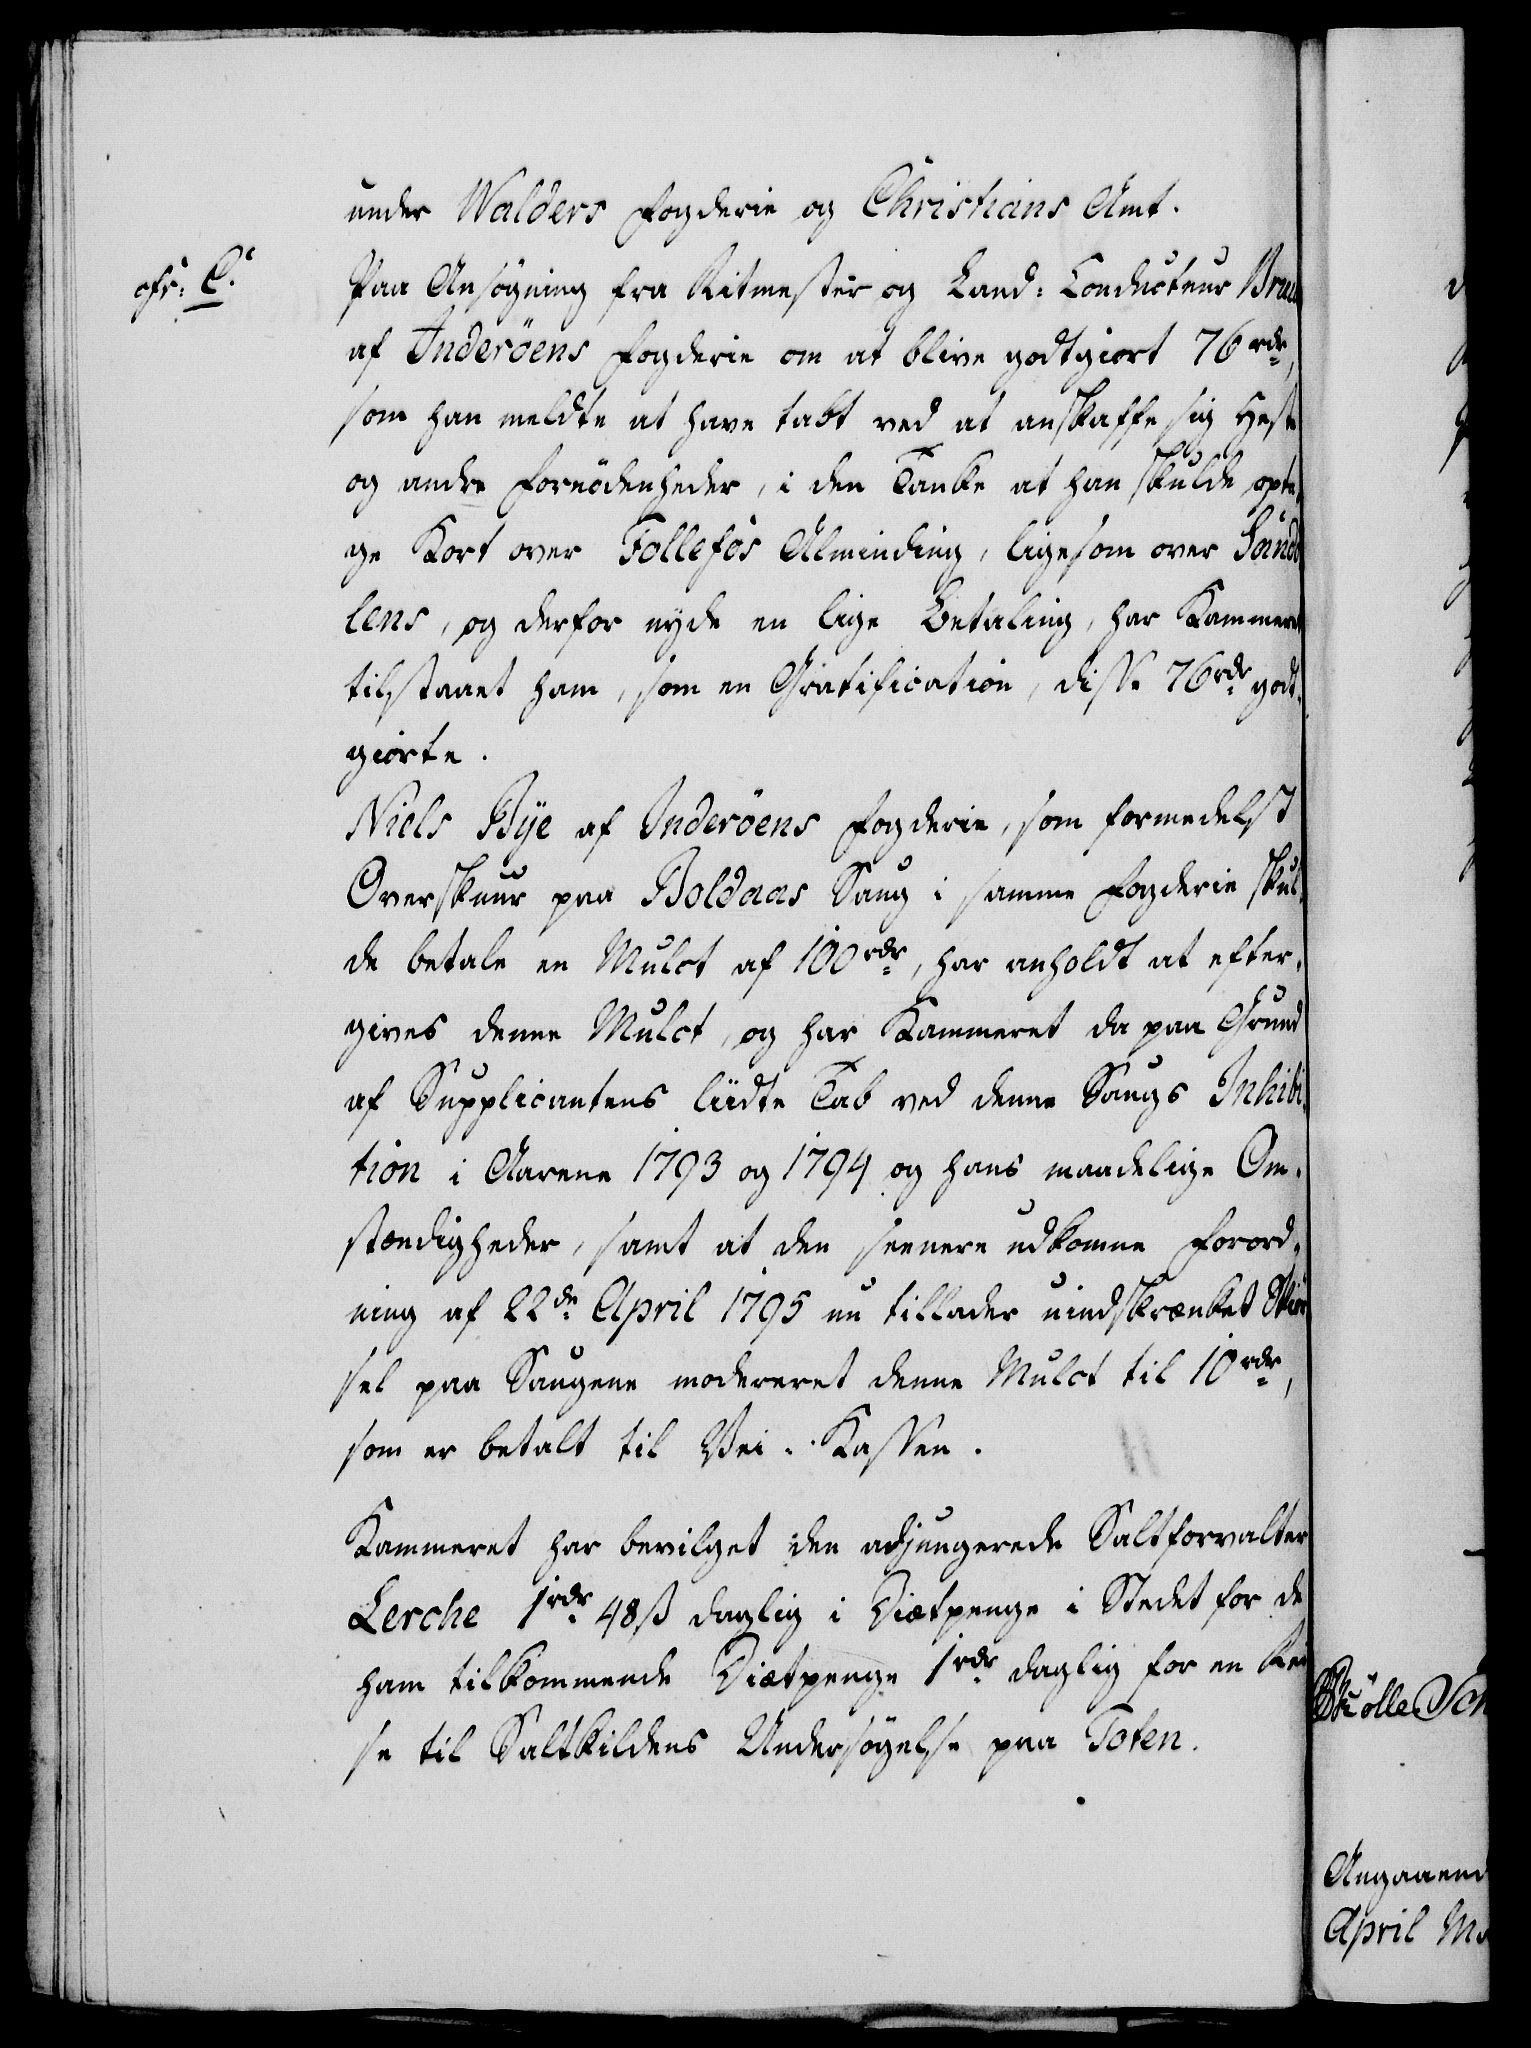 under Walders Fogderie og Christians Amt.
cfr: C.
Paa Ansögning fra Ritmester og Land-Conducteur Bruu
af Inderöens Fogderie om at blive godtgiort 76 rdr,
som han meldte at have tabt ved at anskaffe sig Heste
og andre Fornödenheder, i den Tanke at han skulde opta-
ge Kort over Follefos Alminding, ligesom over
lens, og derfor nyde en lige Betaling, har Kammeret
tilstaaet ham, som en Gratification, disse 76 rdr godt-
giorte.
Niels Bÿe af Inderöens Fogderie, som formedelst
Overskuur paa Boldaas Saug i samme Fogderie skul-
de betale en Mulct af 100 rdr, har anholdt at efter-
gives denne Mulct, og har Kammeret da paa Grund
af Supplicantens liidte Tab ved denne Saugs Inhibi-
tion i Aarene 1793 og 1794 og hans maadelige Om-
stændigheder, samt at den seenere udkomne Forord-
ning af 22de April 1795 nu tillader uindskrænket Skiör
sel paa Saugene modereret denne Mulct til 10 rdr,
som er betalt til Vei-Kassen.
Kammeret har bevilget den adjungerede Saltforvalter
Lerche 1 rdr 48 ß daglig i Diætpenge i Stedet for de
ham tilkommende Diætpenge 1 rdr daglig for en Rei
se til Saltkildens Undersögelse paa Toten.
Angaaend
April